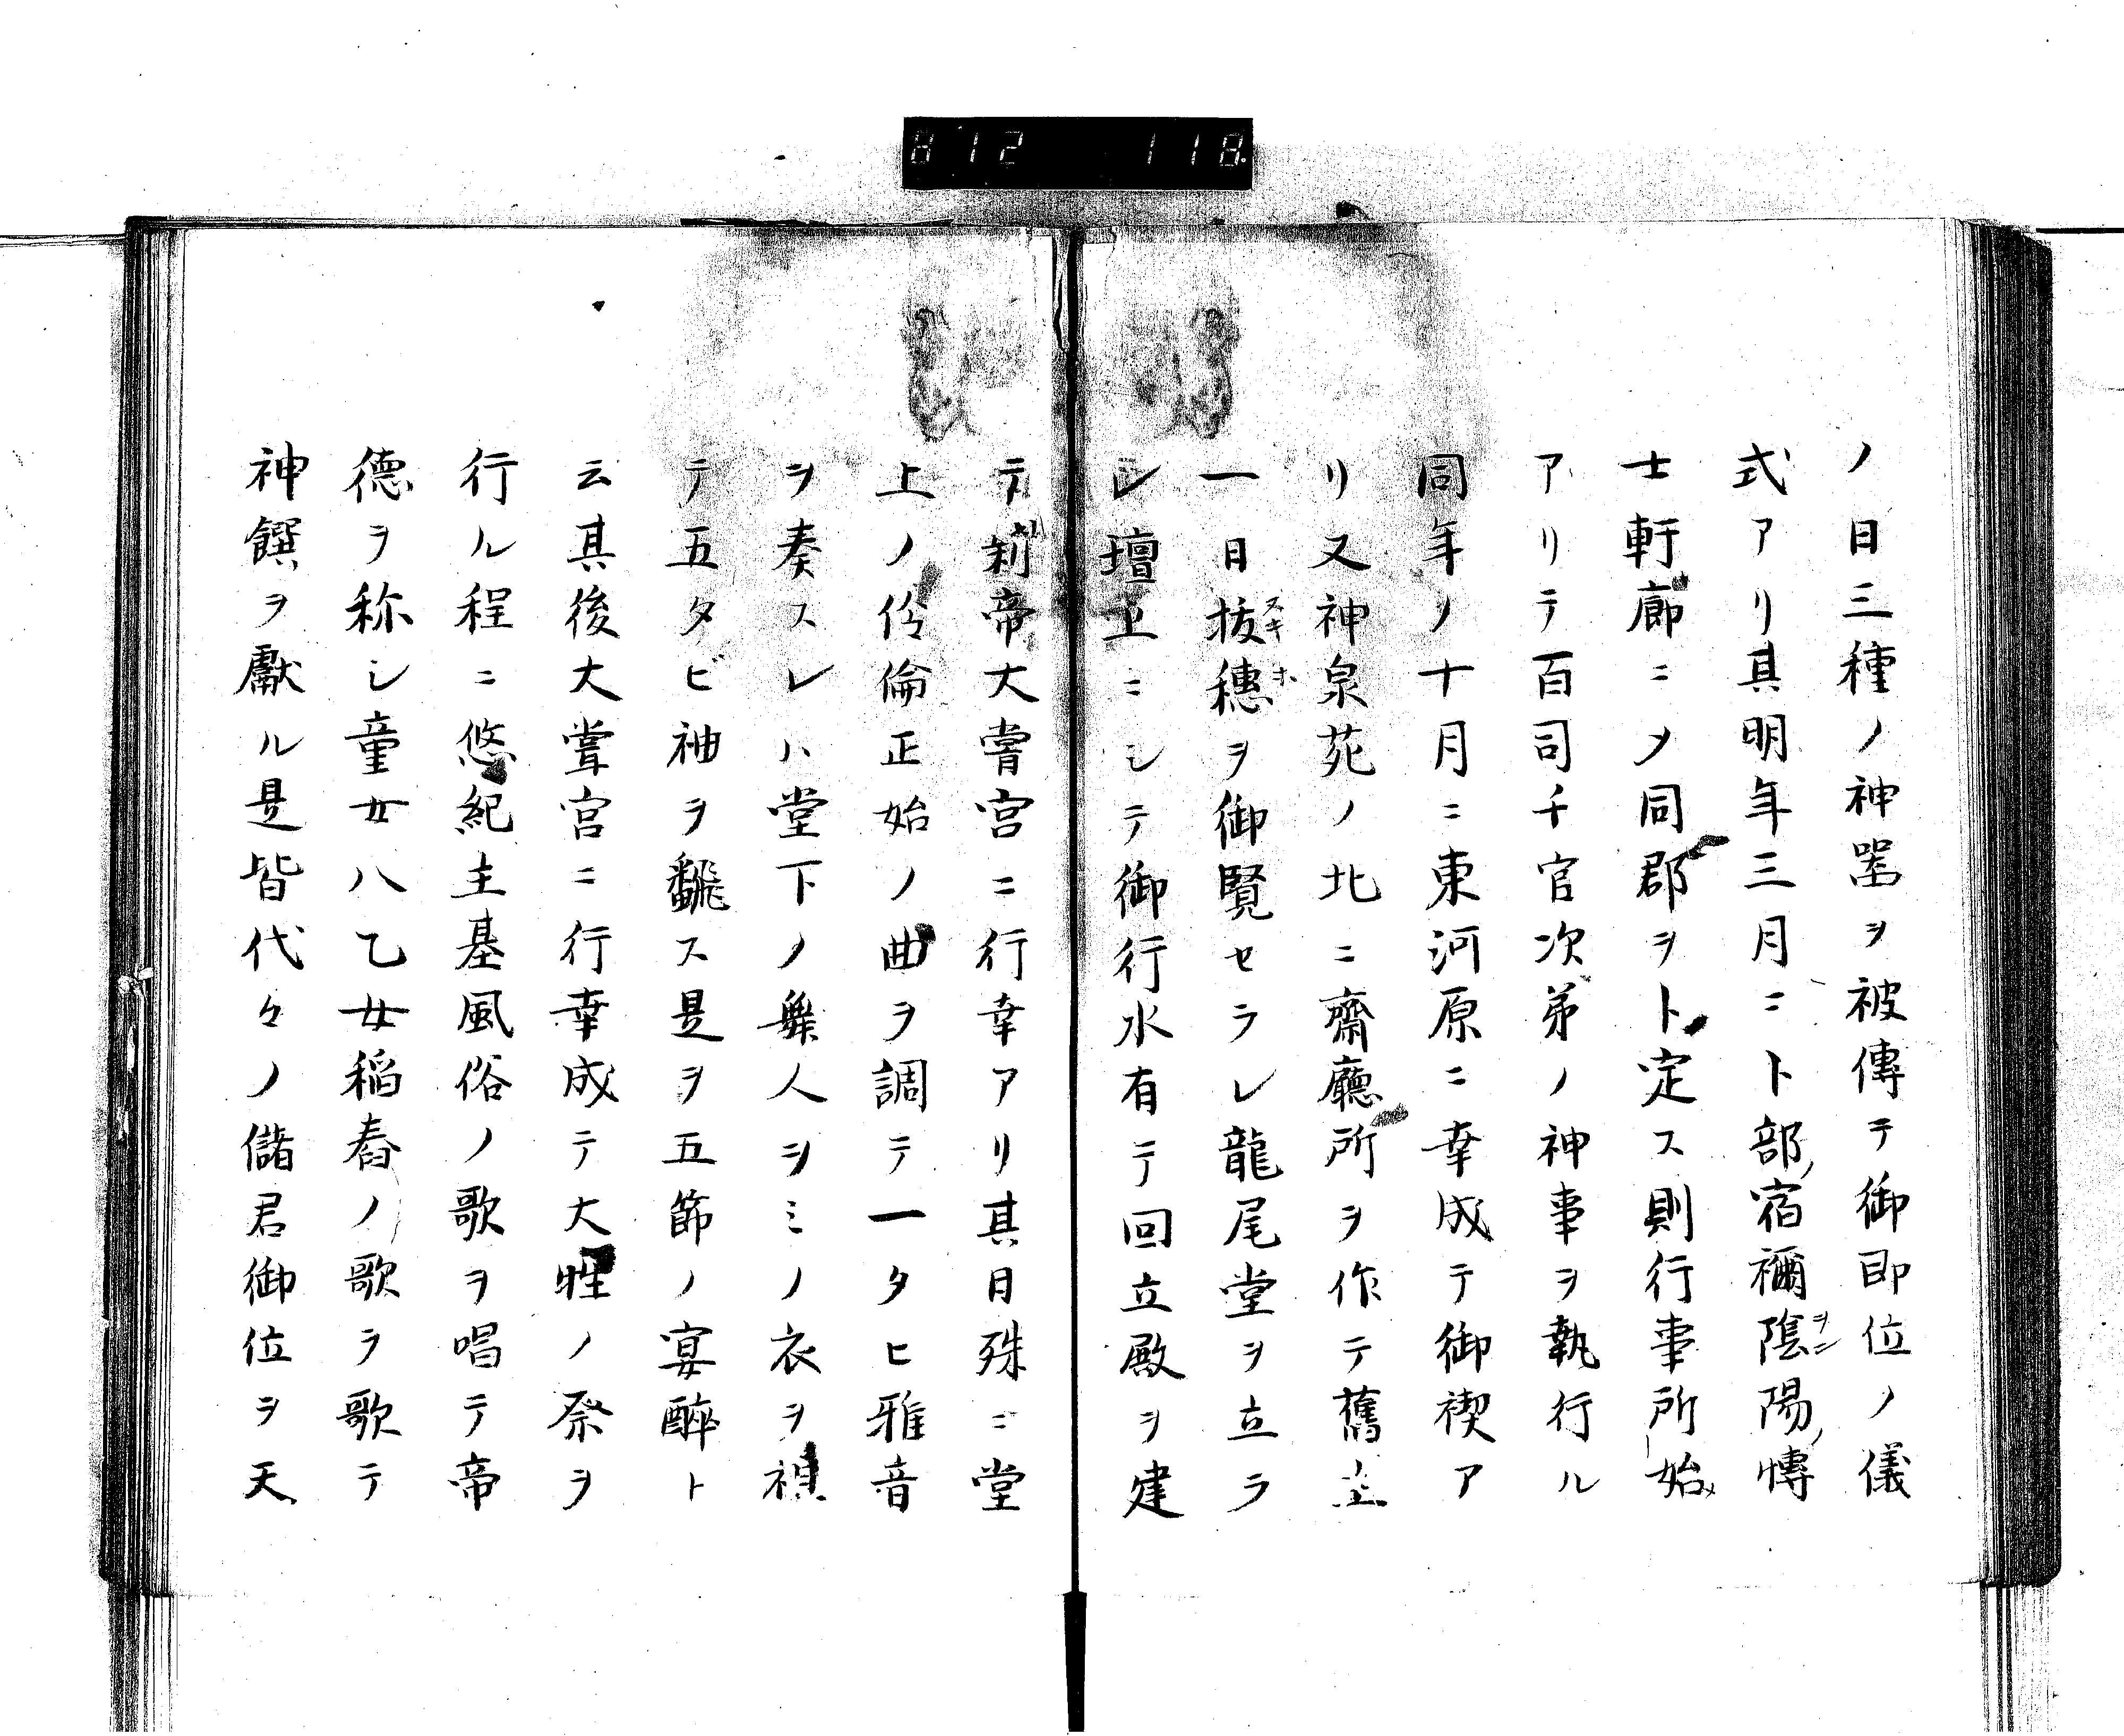 812 118
ノ日三種ノ神器ヲ被傳テ御即位ノ儀
式アリ其明年三月ニ卜部宿禰陰陽博
士軒廊ニメ同郡ヲト定ス則行事所始
アリテ百司千官次第ノ神事ヲ執行ル
同年ノ十月ニ東河原ニ幸成テ御禊ア
リ又神泉苑ノ北ニ齋廳所ヲ作テ舊主
一日抜穗ヲ御覽セラレ龍尾堂ヲ立ラ
レ壇上ニシテ御行水有テ回立殿ヲ建
テ新帝大嘗宮ニ行幸アリ其日殊ニ堂
上ノ伶倫正始ノ曲ヲ調テ一タヒ雅音
ヲ奏スレハ堂下ノ樂人ヲミノ衣ヲ
テ五タビ袖ヲ飜ス是ヲ五節ノ宴醉ト
云其後大嘗宮ニ行幸成テ大牲ノ祭ヲ
行ル程ニ悠紀主基風俗ノ歌ヲ唱テ帝
德ヲ称シ童女八乙女稲舂ノ歌ヲ歌テ
神饌ヲ獻ル是皆代々ノ儲君御位ヲ天